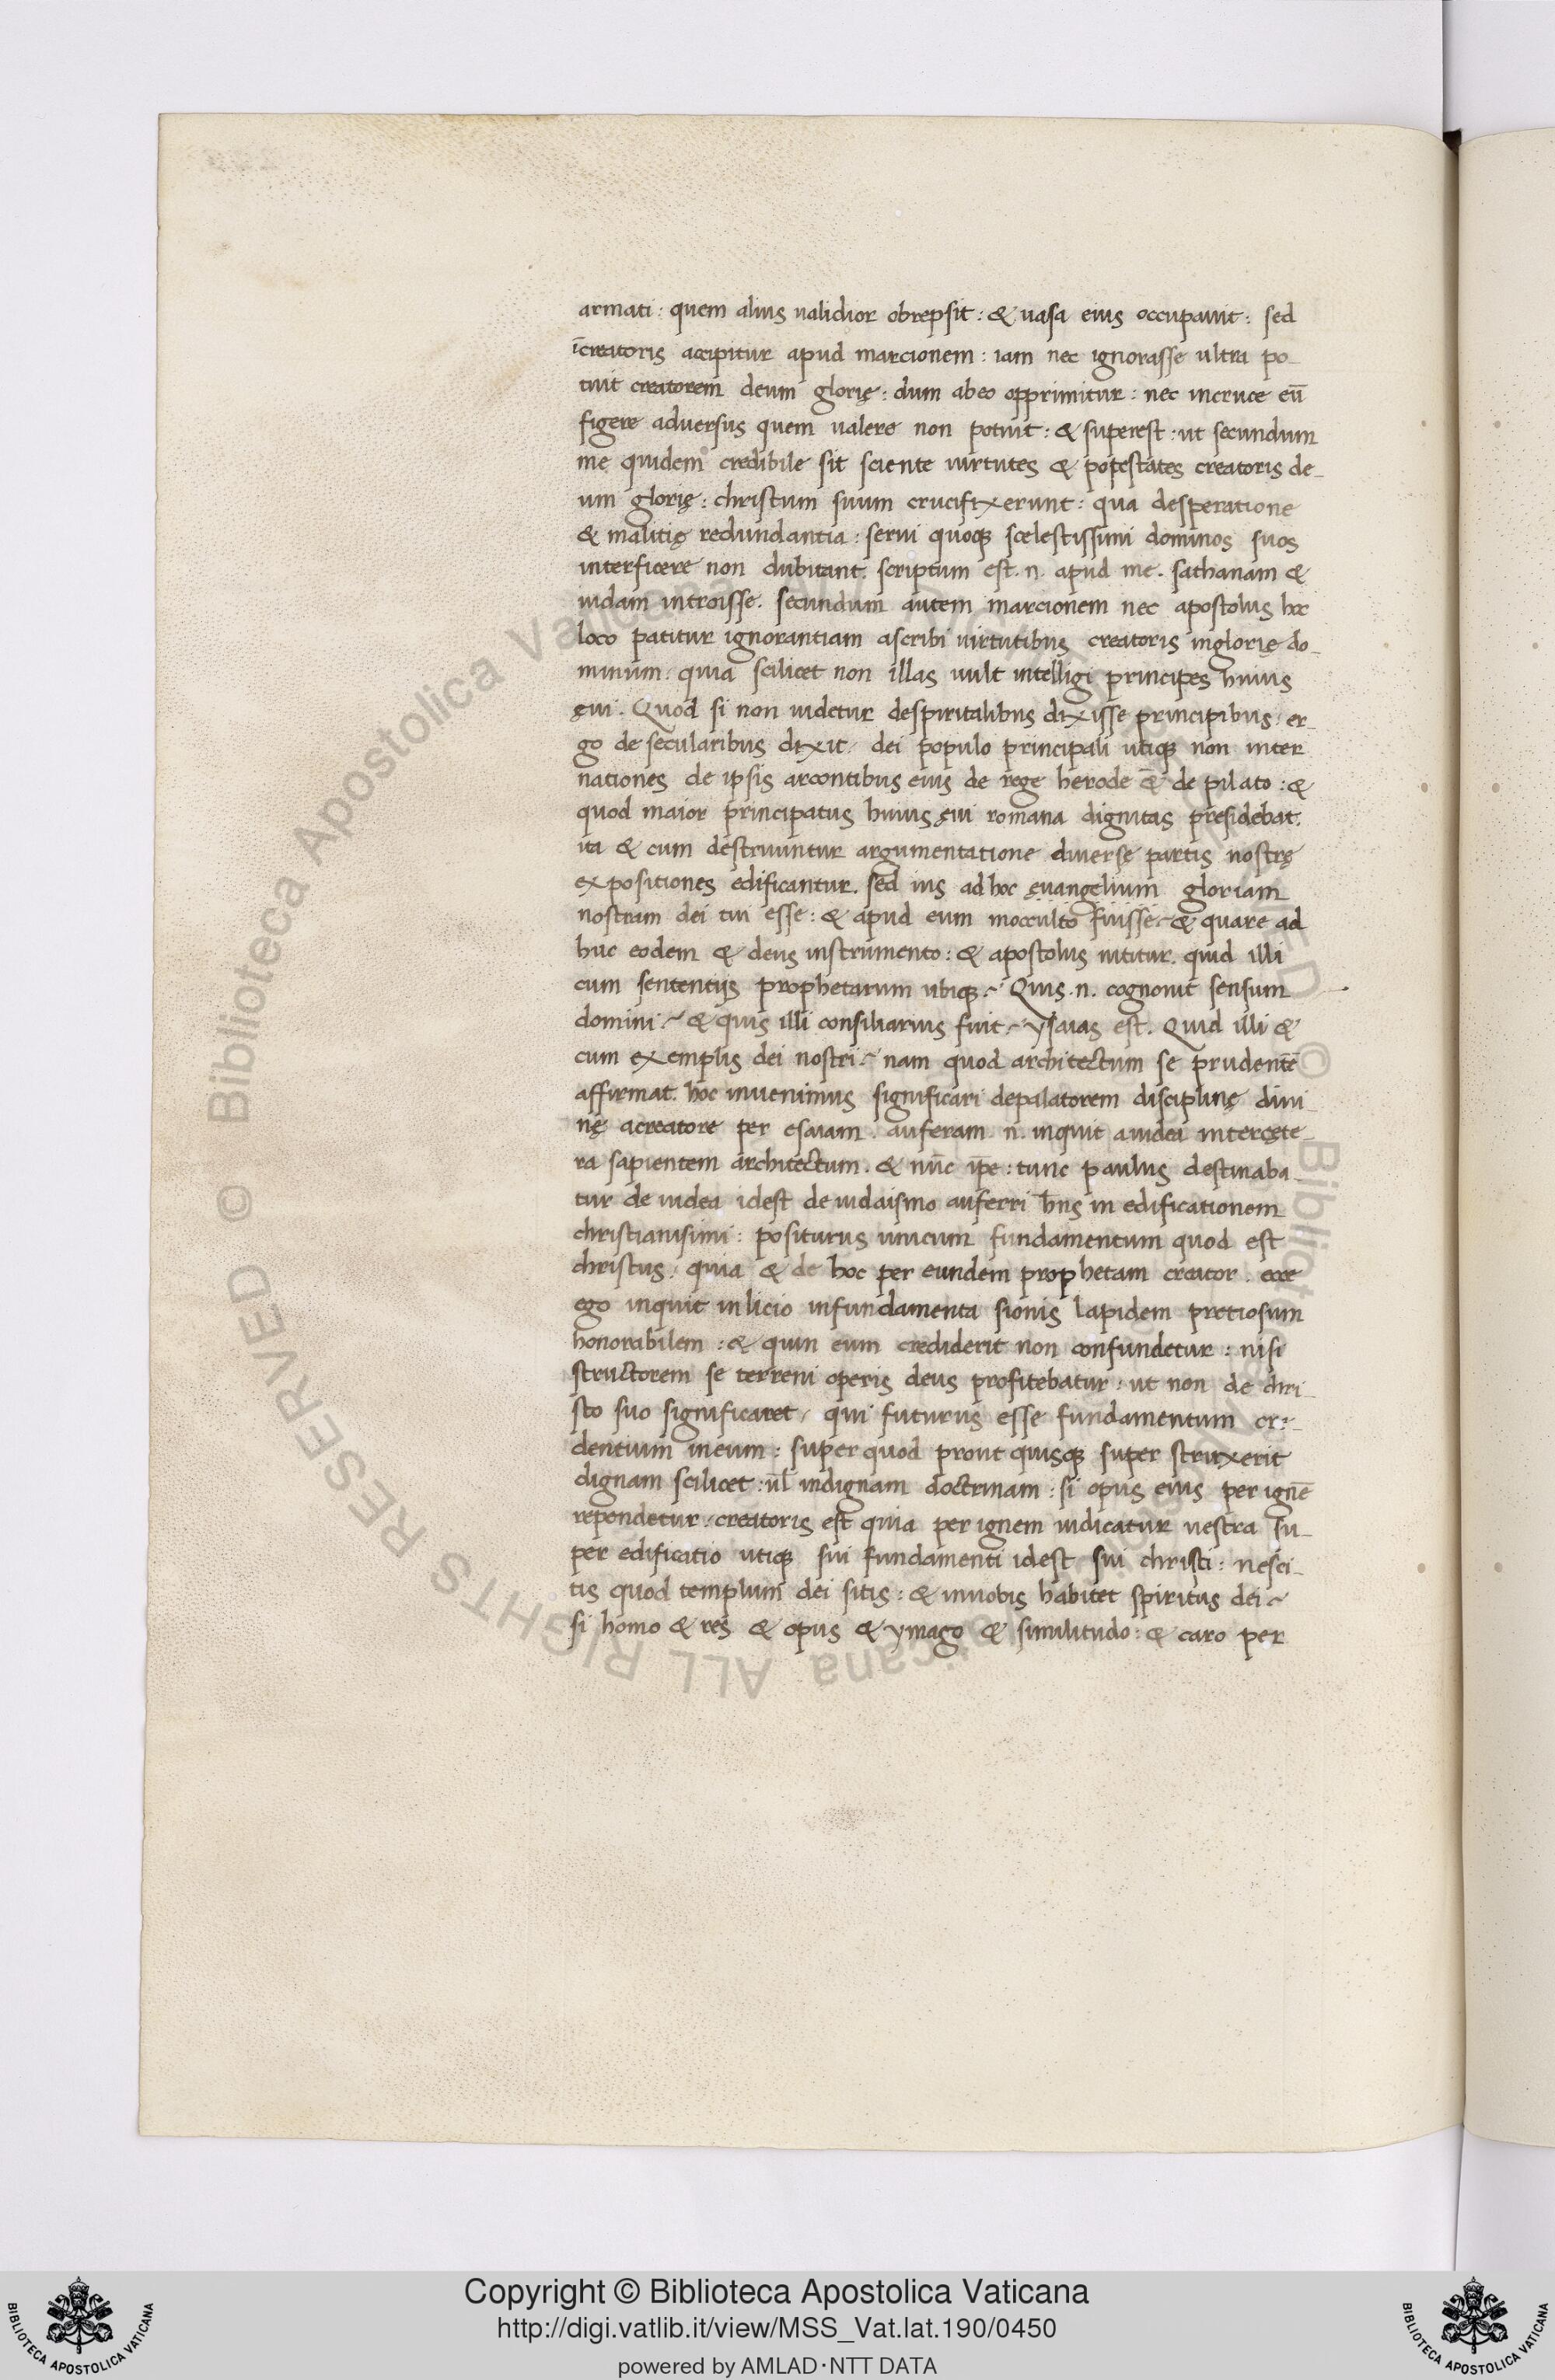 armati: quem alius ualidior obrepsit: & uasa eius occupauit: sed
īcreatoris accipitur apud marcionem: iam nec ignorasse ultra po-
tuit creatorem deum glorię: dum abeo opprimitur: nec incruce eū
figere aduersus quem ualere non potuit: & superest: ut secundum
me quidem credibile sit sciente uirtutes & potestates creatoris de-
um glorię: christum suum crucifixerunt: qua desperatione
& malitię redundantia: serui quoqꝫ scelestissimi dominos suos
interficere non dubitant. scriptum est .n. apud me. sathanam &
iudam introisse. secundum autem marcionem nec apostolus hoc
loco patitur ignorantiam ascribi uirtutibus creatoris inglorię do-
minum: quia scilicet non illas uult intelligi principes huius
ęui. Quod si non uidetur despiritalibus dixisse principibus: er-
go de secularibus dixit: dei populo principali utiqꝫ non inter
nationes de ipsis arcontibus eius de rege herode & de pilato: &
quod maior principatus huius ęui romana dignitas presidebat.
ita & cum destruuntur argumentatione diuersę partis nostrę
expositiones edificantur. sed uis ad hoc ęuangelium gloriam
nostram dei tui esse: & apud eum inocculto fuisse: & quare ad
huc eodem & deus instrumento: & apostolus nititur. quid illi
cum sententiis prophetarum ubiqꝫ: Quis .n. cognouit sensum
domini: & quis illi consiliarius fuit: ysaias est. Quid illi &
cum exemplis dei nostri: nam quod architectum se prudentē
affirmat. hoc inuenimus significari depalatorem disciplinę diui-
nę acreatore per esaiam. auferam .n. inquit aiudea intercęte-
ra sapientem architectum. & nūc ip̄e: tunc paulus destinaba-
tur de iudea idest de iudaismo auferri h̄ns in edificationem
christianisimi: positurus unicum fundamentum quod est
christus: quia & de hoc per eundem prophetam creator. ecce
ego inquit inlicio infundamenta sionis lapidem pretiosum
honorabilem: & quin eum crediderit non confundetur: nisi
structorem se terreni operis deus profitebatur: ut non de chri-
sto suo significaret: qui futurus esse fundamentum cre-
dentium ineum: super quod prout quisqꝫ super struxerit
dignam scilicet: ul̄ indignam doctrinam: si opus eius per ignē
rependetur: creatoris est quia per ignem iudicatur uestra su-
per edificatio utiqꝫ sui fundamenti idest sui christi: nesci-
tis quod templum dei sitis: & inuobis habitet spiritus dei:
si homo & res & opus & ymago & similitudo: & caro per
© Biblioteca Apostolica Vaticana ALL RIGHTS RESERVED
Copyright © Biblioteca Apostolica Vaticana
http://digi.vatlib.it/view/MSS_Vat.lat.190/0450
powered by AMLAD·NTT DATA
BIBLIOTECA APOSTOLICA VATICANA
BIBLIOTECA APOSTOLICA VATICANA